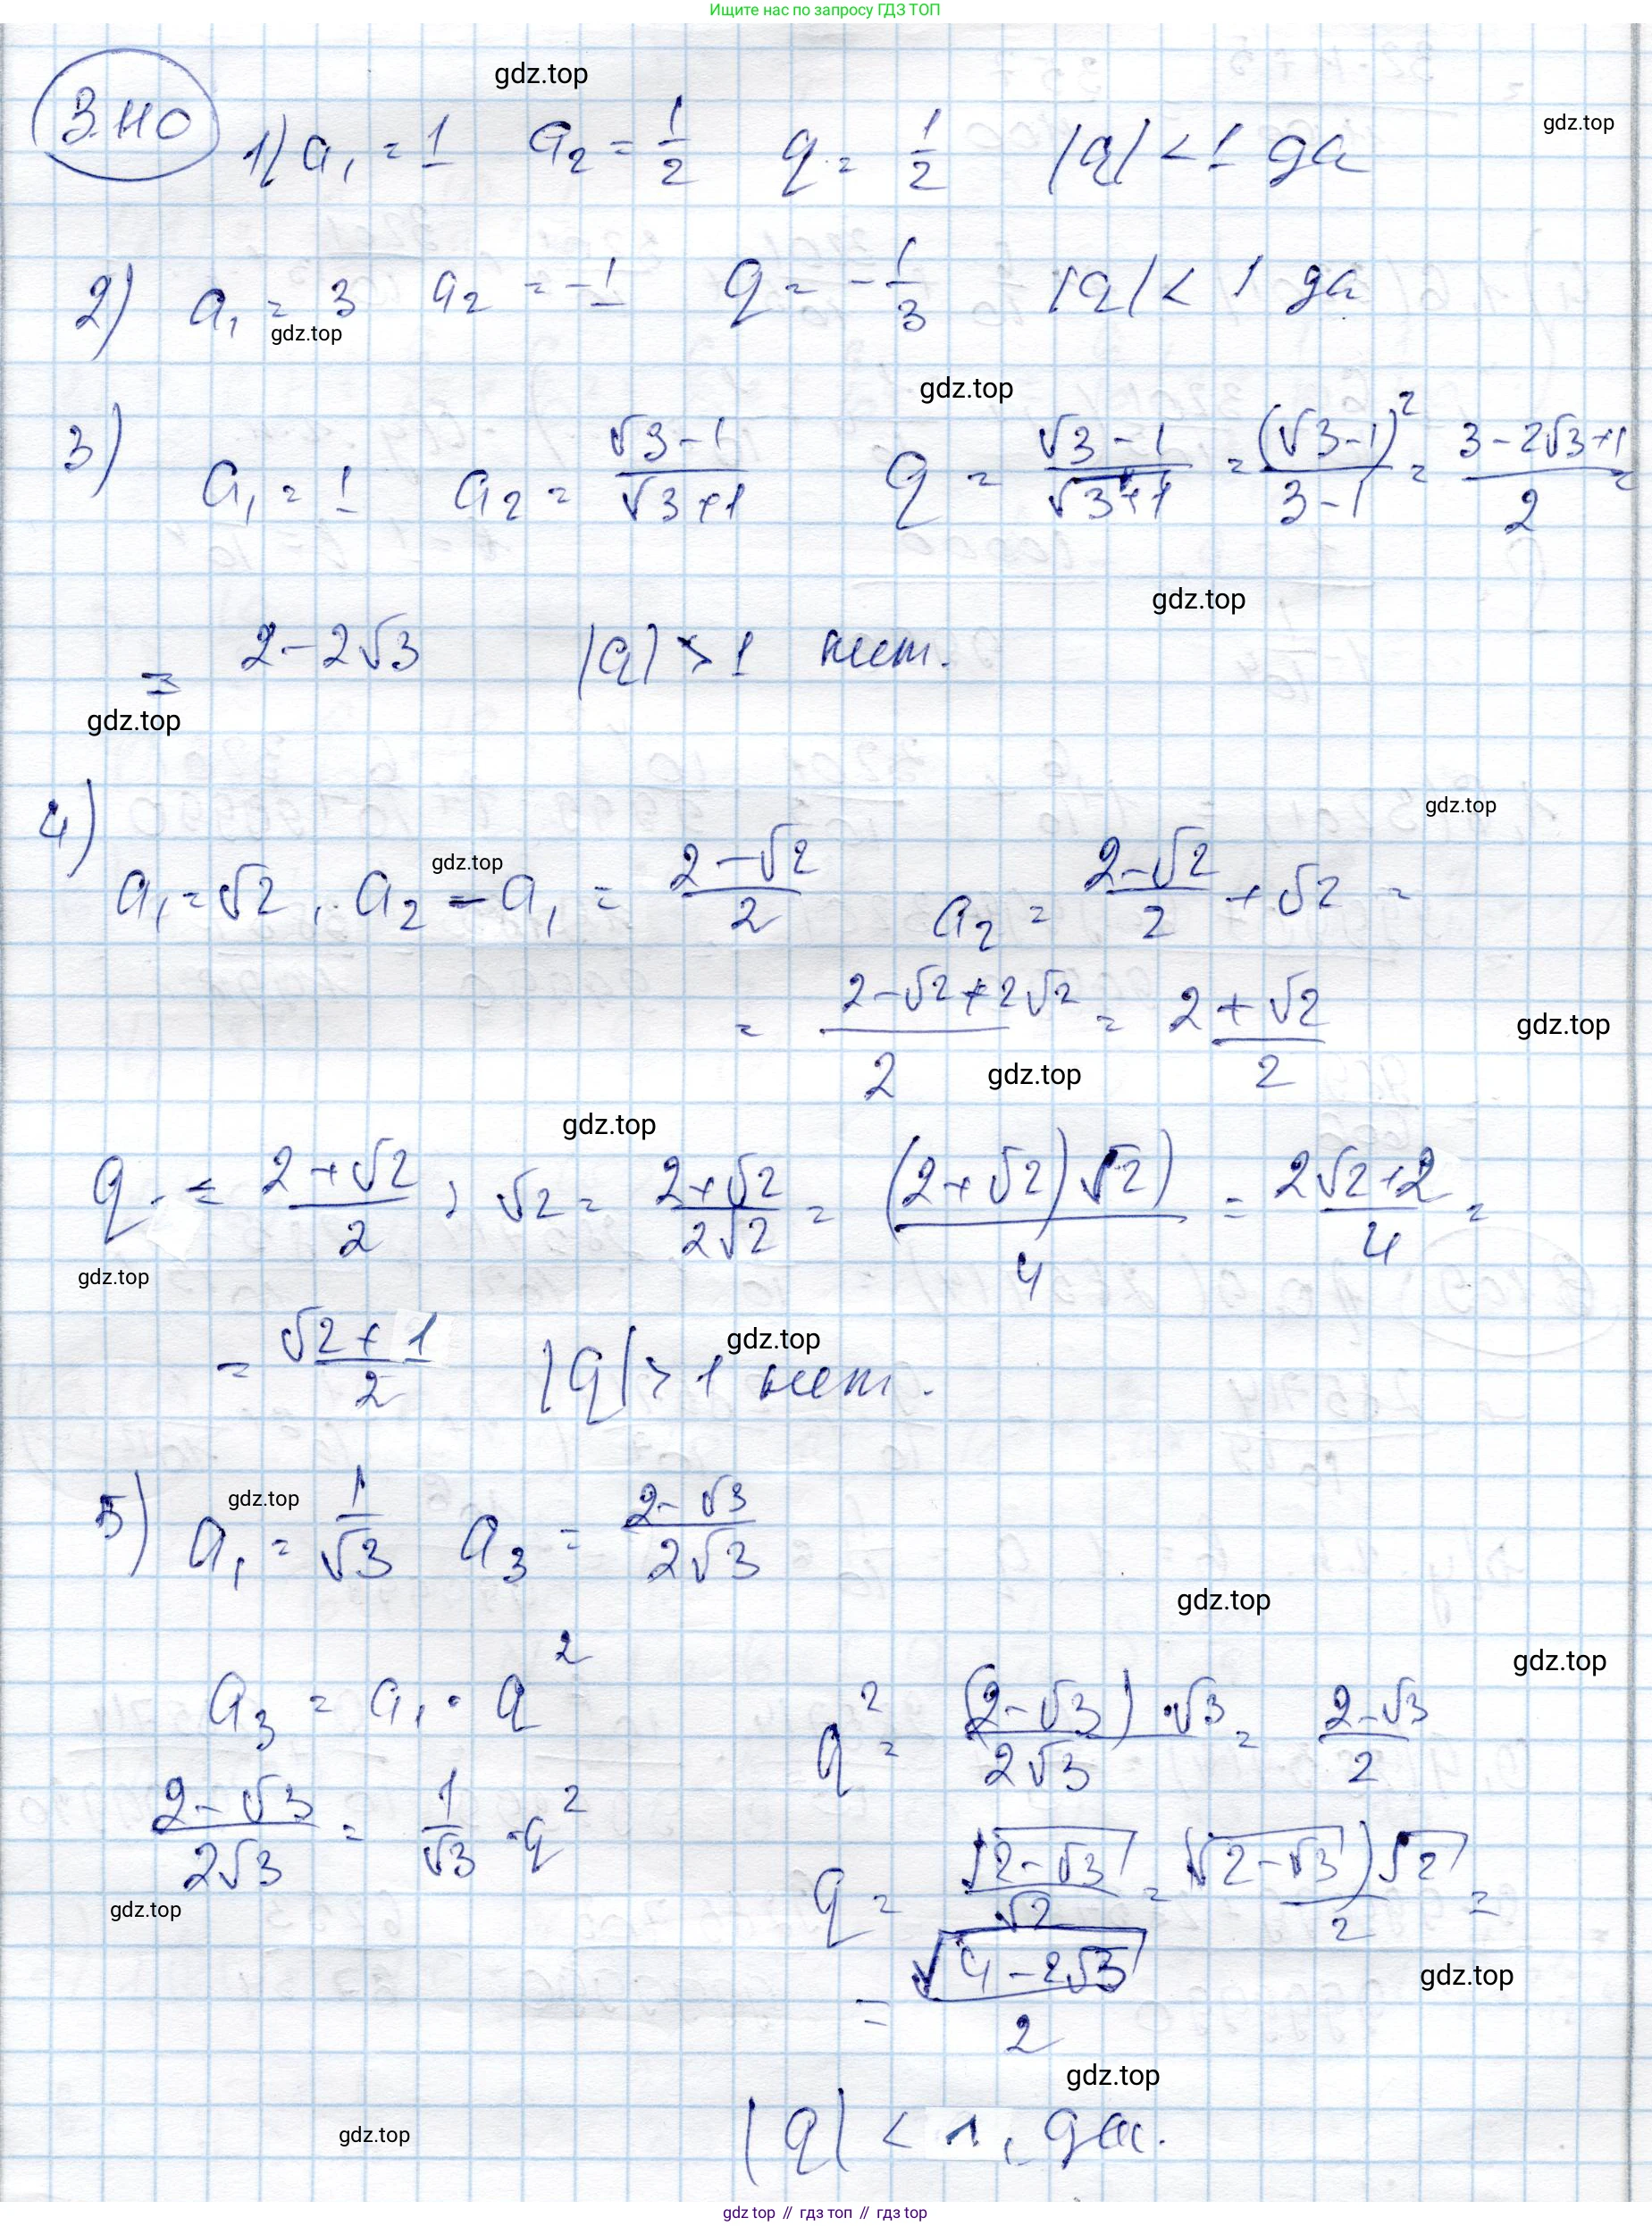 Ищите нас по запросу ГДЗ ТОП
gdz.top
3.110
1) a₁ = 1 a₂ = 1/2 q = 1/2 |q| < 1 да
gdz.top
2) a₁ = 3 a₂ = -1 q = -1/3 |q| < 1 да
gdz.top
gdz.top
3) a₁ = 1 a₂ = (√3-1)/(√3+1) q = (√3-1)/(√3+1) = (√3-1)²/(3-1) = (3-2√3+1)/2 =
gdz.top
= 2-2√3 |q| > 1 нет.
gdz.top
4)
gdz.top
gdz.top
a₁ = √2, a₂ - a₁ = (2-√2)/2 a₂ = (2-√2)/2 + √2 =
= (2-√2+2√2)/2 = (2+√2)/2
gdz.top
gdz.top
gdz.top
q = (2+√2)/2 : √2 = (2+√2)/(2√2) = (2+√2)√2)/4 = (2√2+2)/4 =
gdz.top
= (√2+1)/2 |q| > 1 нет.
gdz.top
5) a₁ = 1/√3 a₃ = (2-√3)/(2√3)
gdz.top
gdz.top
gdz.top
a₃ = a₁ · q² q² = (2-√3)·√3/(2√3) = (2-√3)/2
(2-√3)/(2√3) = 1/√3 · q² q = √(2-√3)/√2 = (√(2-√3))√2/2 =
gdz.top
= √(4-2√3)/2
gdz.top
gdz.top
|q| < 1, да.
gdz.top
gdz top // гдз топ // гдз top